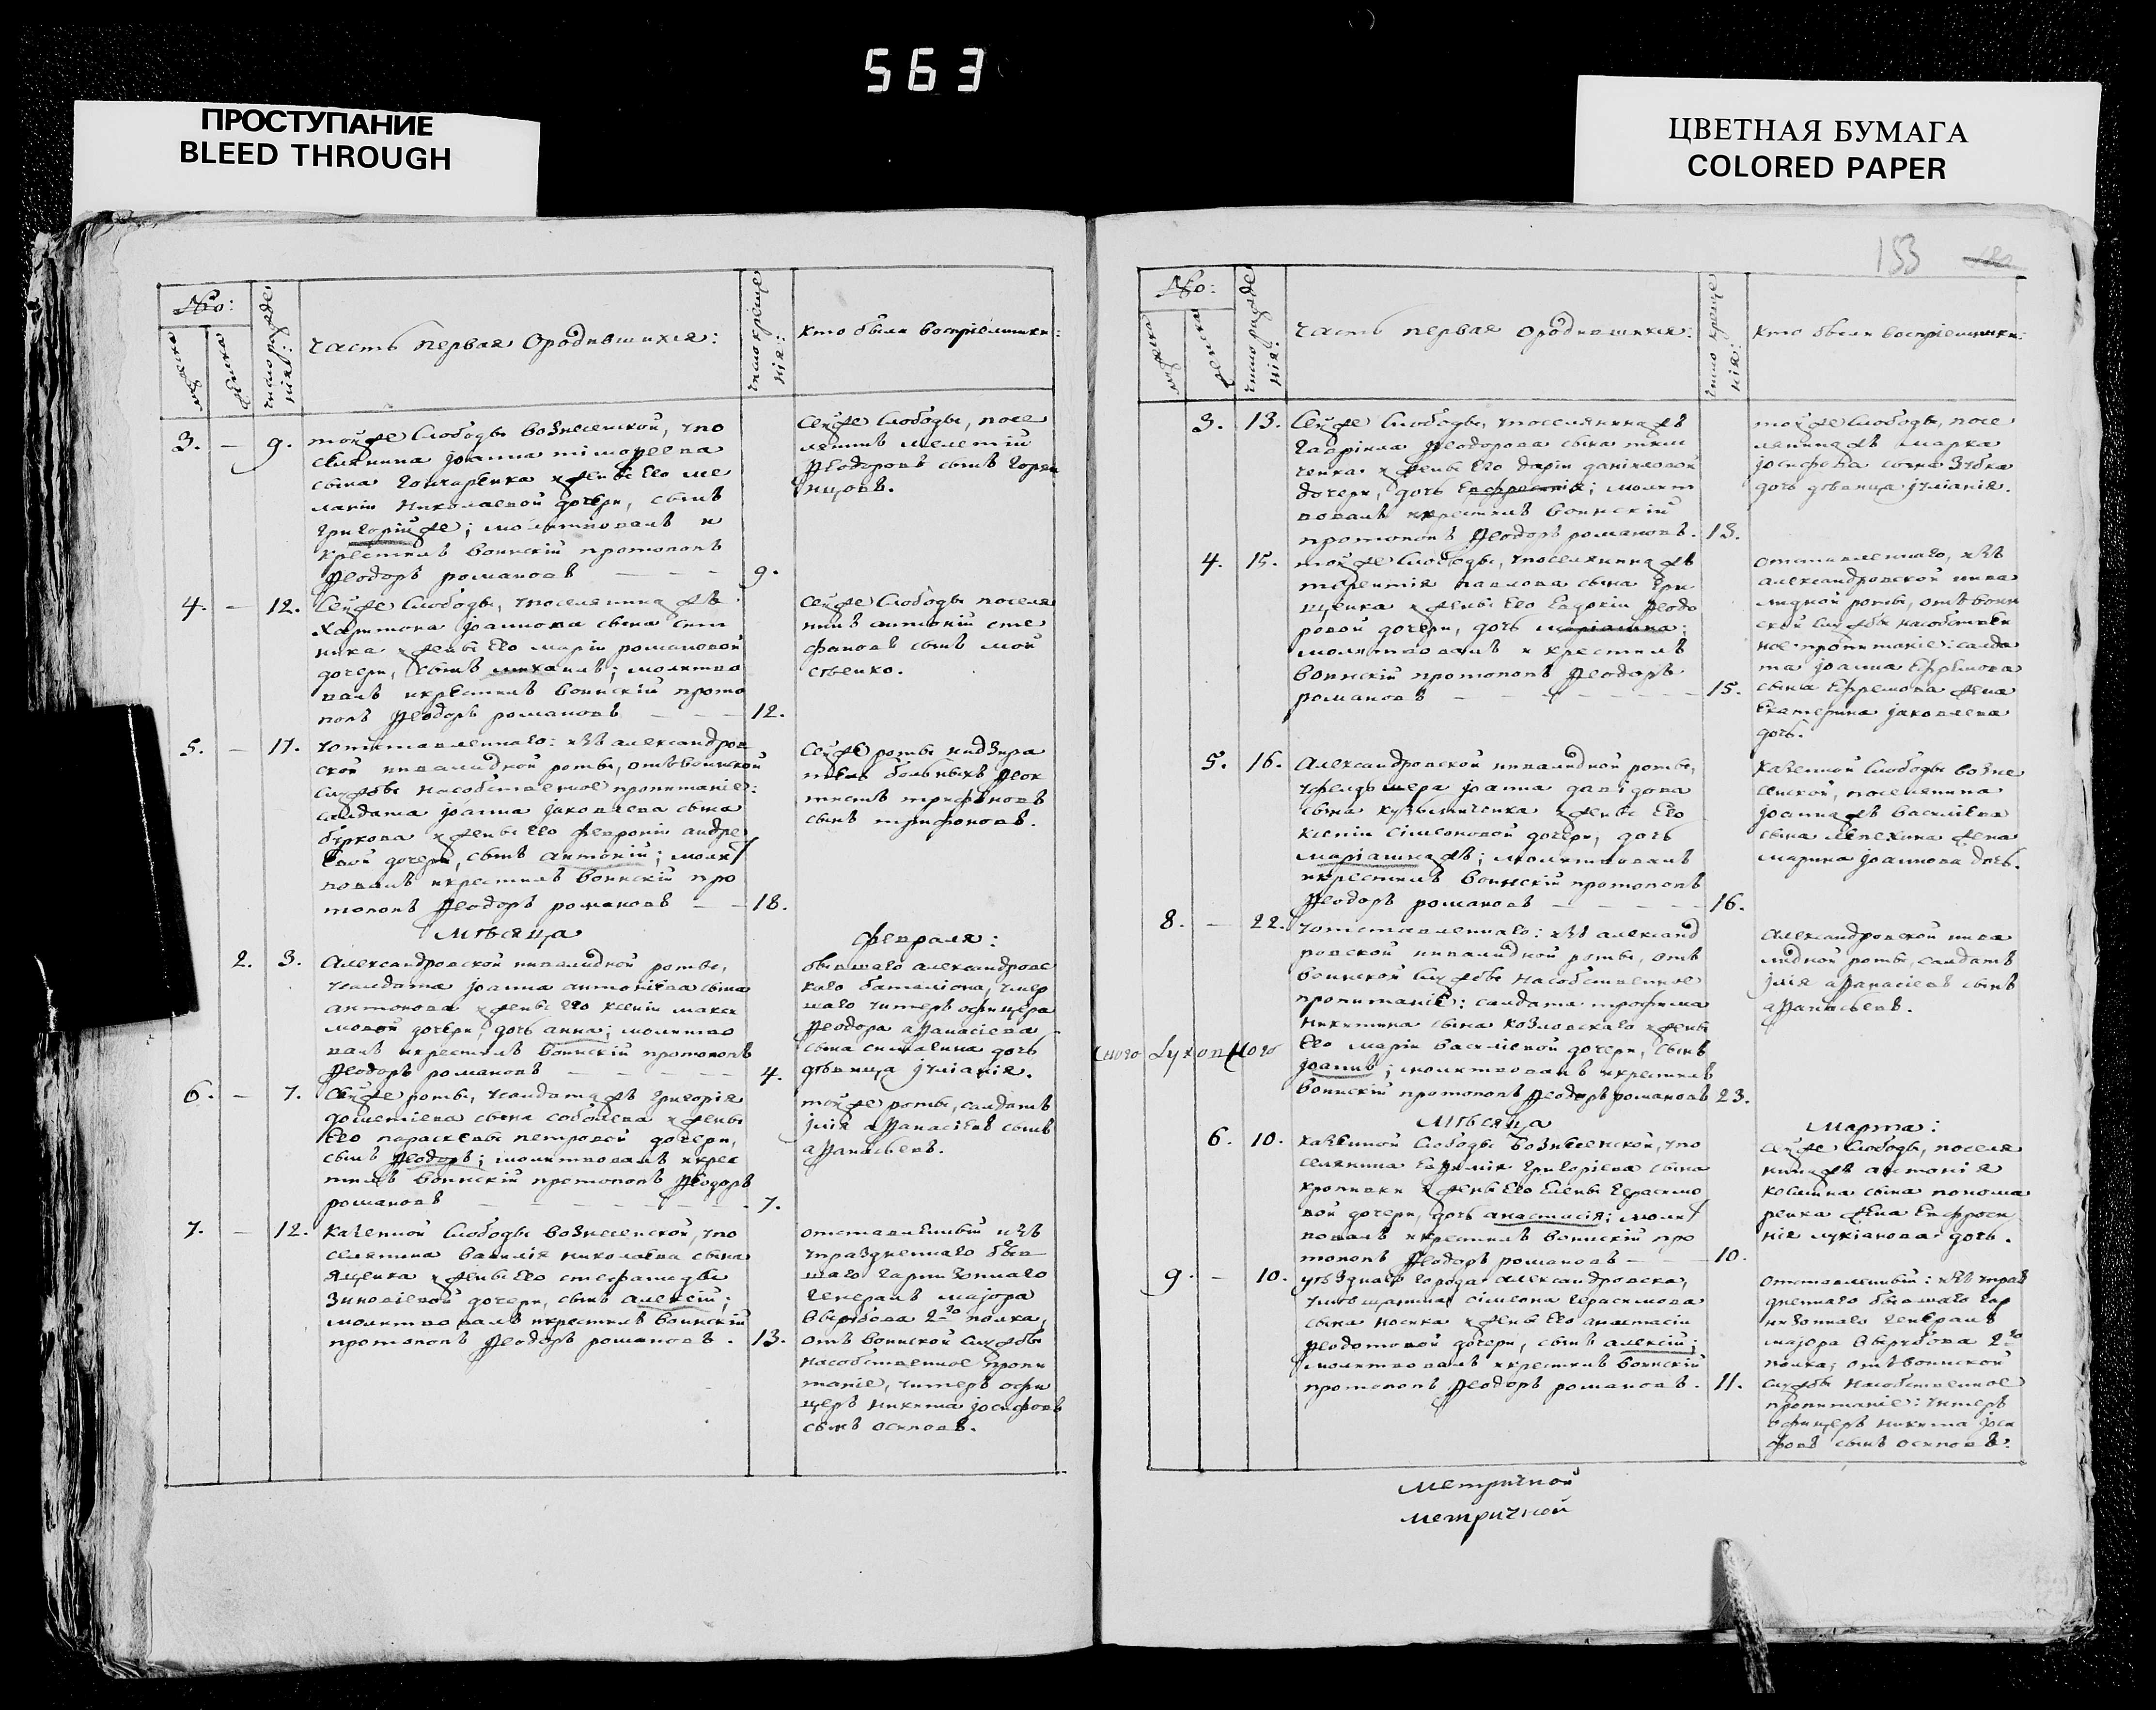 563
ПРОСТУПАНИЕ
BLEED THROUGH
ЦВЕТНАЯ БУМАГА
COLORED PAPER
153
No:
мужеска
женска
число рожде
нія:
часть первая ородившихся:
число креще
нія:
кто были воспріемники:
3. — 9. тойже Слободы вознесенской, упо
селянина іоанна тімофеева
сына гончаренка ижены его ме
ланіи николаевой дочери, сынъ
григорійже; молитвовалъ и
крестилъ воинскій протопопъ
Ѳеодоръ романовъ — — — 9.
Сейже Слободы, посе
ленинъ мелетій
Ѳеодоровъ сынъ горян
4. — 12. Сейже Слободы, упоселянинажъ
Харитона іоаннова сына сит
ника ижены его маріи романовой
дочери, сынъ михаилъ; молитво
валъ икрестилъ воинскій прото
попъ Ѳеодоръ романовъ — — 12.
Сейже Слободы поселя
нинъ антоній сте
фановъ сынъ мой
сеенко.
5. — 17. уотставленнаго: изъ александров
ской инвалидной роты, отъ воинской
службы насобственное пропитаніе:
салдата іоанна іаковлева сына
буркова ижены его февроніи андре
евой дочери, сынъ антоній; молит
вовалъ икрестилъ воинскій про
топопъ Ѳеодоръ романовъ — — 18.
Сейже роты надзира
тель больныхъ Ѳеок
тистъ трифоновъ
сынъ трифоновъ.
Мѣсяца
февраля:
2. 3. Александровской инвалидной роты,
усалдата іоанна антоніева сына
антонова ижены его ксеніи макси
мовой дочери, дочь анна; молитво
валъ икрестилъ воинскій протопопъ
Ѳеодоръ романовъ — — — — 4.
бывшаго александровс
каго баталіона, умер
шаго унтеръ офицера
Ѳеодора аѲанасіева
сына дочь
дѣвица іуліанія.
6. — 7. Сейже роты, усалдатажъ григорія
дометіева сына соболева ижены
его параскевы петровой дочери,
сынъ Ѳеодоръ; молитвовалъ икрес
тилъ воинскій протопопъ Ѳеодоръ
романовъ — — — — — — 7.
тойже роты, салдатъ
іулія аѲанасіевъ сынъ
аѲанасьевъ.
7. — 12. казенной Слободы вознесенской, упо
селянина василія николаева сына
ященка ижены его стефаниды
зиновіевой дочери, сынъ алексій;
молитвовалъ икрестилъ воинскій
протопопъ Ѳеодоръ романовъ. 13.
отставленный изъ
упраздненнаго быв
шаго гарнизоннаго
генералъ маіора
Аверкова 2го полка,
отъ воинской службы
насобственное пропи
таніе, унтеръ офи
церъ никита іосифовъ
сынъ осиповъ.
No:
мужеска
женска
число рожде
нія:
часть первая ородившихся:
число креще
нія:
кто были воспріемники:
3. 13. Сейже Слободы, упоселянинажъ
гавріила Ѳеодорова сына
ижены его даріи даніиловой
дочери, дочь Евфросинія; молит
вовалъ икрестилъ воинскій
протопопъ Ѳеодоръ романовъ. 13.
тойже Слободы, посе
лянинажъ марка
іосифова сына зубка
дочь дѣвица іуліанія.
4. 15. тойже Слободы, упоселянинажъ
терентія павлова сына гри
щенка ижены его Евдокіи Ѳеодо
ровой дочери, дочь маріанна;
молитвовалъ и крестилъ
воинскій протопопъ Ѳеодоръ
романовъ — — — — — 15.
отставленнаго, изъ
александровской инва
лидной роты, отъ воин
ской службы насобствен
ное пропитаніе: салда
та іоанна Ефремова
сына Ефремова жена
Екатерина іаковлева
дочь.
5. 16. Александровской инвалидной роты,
уфелдшера іоанна давідова
сына кузьминенка ижены его
ксеніи сімеоновой дочери, дочь
маріаннажъ; молитвовалъ
икрестилъ воинскій протопопъ
Ѳеодоръ романовъ — — — — 16.
казенной Слободы возне
сенской, поселянина
іоаннажъ василіева
сына лепехина жена
марина іоаннова дочь.
8. — 22. уотставленнаго: изъ александ
ровской инвалидной роты, отъ
воинской службы насобственное
пропитаніе: салдата трофима
никитина сына козловскаго ижены
его маріи василіевой дочери, сынъ
іоаннъ; молитвовалъ икрестилъ
воинскій протопопъ Ѳеодоръ романовъ 23.
Александровской инва
лидной роты, салдатъ
іулія аѲанасіевъ сынъ
аѲанасьевъ.
Мѣсяца
Марта:
6. 10. казенной Слободы вознесенской, упо
селянина Евѳимія григоріева сына
кропивки ижены его Елены герасимо
вой дочери, дочь анастасія; молит
вовалъ икрестилъ воинскій про
топопъ Ѳеодоръ романовъ — — 10.
Сейже Слободы, поселя
нинажъ антонія
космина сына понома
ренка жена Евфроси
нія лукіанова дочь.
9. — 10. уѣзднаго города александровска,
умѣщанина сімеона герасимова
сына носика ижены его анастасіи
Ѳеодотовой дочери, сынъ алексій;
молитвовалъ икрестилъ воинскій
протопопъ Ѳеодоръ романовъ. 11.
отставленный: изъ упраз
дненнаго бывшаго гар
низоннаго генералъ
маіора Аверкова 2го
полка, отъ воинской
службы насобственное
пропитаніе: унтеръ
офицеръ никита іоси
фовъ сынъ осиповъ.
метричной
метричной